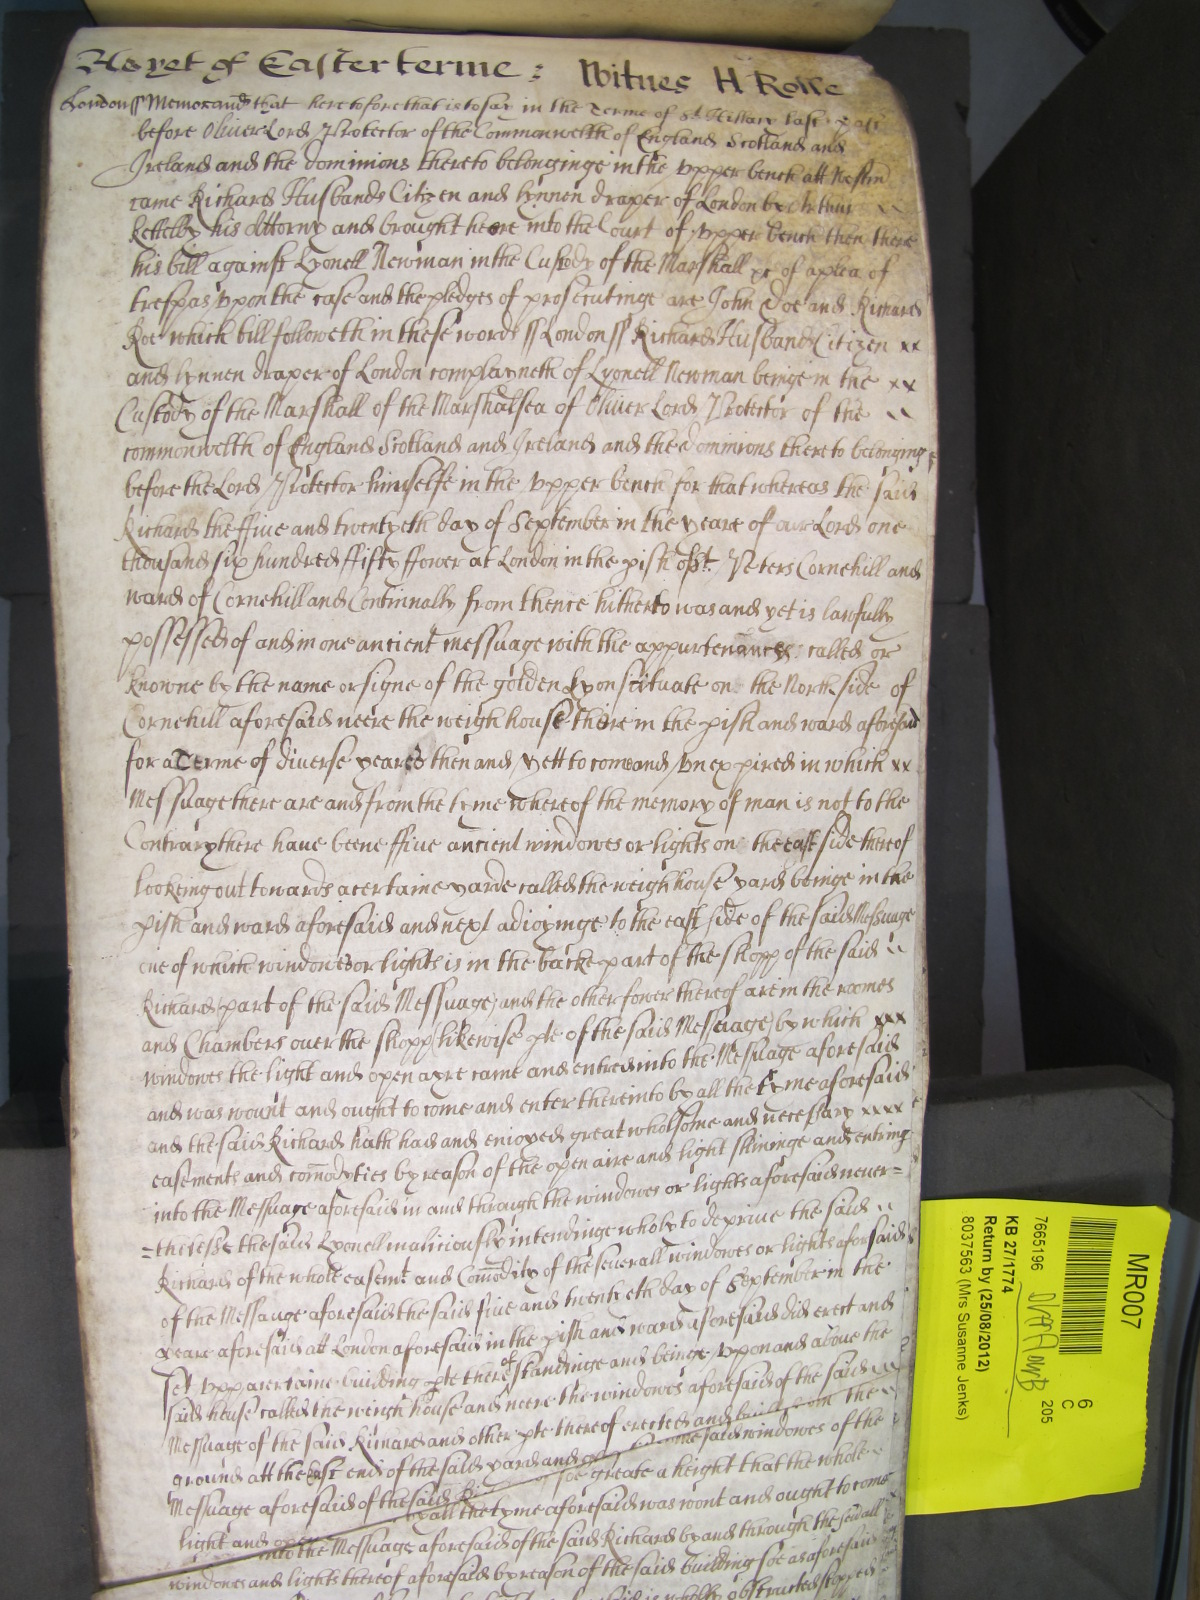 As yet of Easter terme : Witnes H Rolle
London ss Memorand that heretofore that is to say in the Terme of St Hillary last past
before Oliver Lord Protector of the Commonwelth of England Scotland and
Ireland and the dominions thereto belonginge in the upper bench att Westm
came Richard Husband Citizen and lynnen draper of London by Arthur
Kettelby his Attorny and brought heere into the Court of upper bench then there
his bill against Lyonell Newman in the Custody of the Marshall &c of a plea of
trespas upon the case and the pledges of prosecutinge are John Doe and Richard
Roe which bill followeth in these words ss London ss Richard Husband Citizen xx
and lynnen draper of London complayneth of Lyonell Newman beinge in the xx
Custody of the Marshall of the Marshalsea of Oliver Lord Protector of the
commonwelth of England Scotland and Ireland and the dominions thereto belonging
before the Lord Protector himselfe in the upper bench for that whereas the said
Richard the ffive and twentyeth day of September in the yeare of our Lord one
thousand six hundred ffifty ffower at London in the pish of St. Peters Cornehill and
ward of Cornehill and Continually from thence hitherto was and yet is lawfully
possessed of and in one ancient messuage with the appurtenances called or
knowne by the name or signe of the golden Lyon scituate on the North side of
Cornehill aforesaid neere the weigh house there in the pish and ward aforesaid
for a Terme of diverse yeares then and yett to come and unexpired in which xx
Messuage there are and from the tyme whereof the memory of man is not to the
Contrary there have beene ffive ancient windowes or lights on the east side thereof
lookeing out towards a certaine yarde called the weighhouse yard beinge in the
pish and ward aforesaid and next adioyninge to the east side of the said Messuage
one of which windowes or lights is in the backe part of the shopp of the said
Richard (part of the said Messuage) and the other fower thereof are in the roomes
and Chambers over the shopp (likewise pte of the said Messuage) by which xxx
windowes the light and open ayre came and entred into the Messuage aforesaid
and was wount and ought to come and enter thereinto by all the tyme aforesaid
and the said Richard hath had and enioyed great wholsome and necessary xxxx
easements and comodyties by reason of the open aire and light shininge and entring
into the Messuage aforesaid in and through the windowes or lights aforesaid never=
=thelesse the said Lyonell maliciously intendinge wholy to deprive the said
Richard of the whole easemt and Comodity of the severall windowes or lights aforsaid
of the Messauge aforesaid the said five and twentyeth day of September in the
yeare aforesaid att London aforesaid in the pish and ward aforesaid did erect and
set upp a certaine building pte thereof standinge and beinge upon and above the
said house called the weigh house and neere the windowes aforesaid of the said
Messuage of the said Richard and other pte thereof erected and from the
ground att the East end of the said yard and the said windowes of the
Messuage aforesaid of the said soe greate a height that the whole
light and open all the tyme aforesaid was wont and ought to come
into the Messuage aforesaid of the said Richard by and through the severall
windowes and lights thereof aforesaid by reason of the said building soe as aforesaid
is wholly obstructed stopped
MR007
6
C
205
7665196
KB 27/1774
Return by (25/08/2012)
8037563 (Mrs Susanne Jenks)